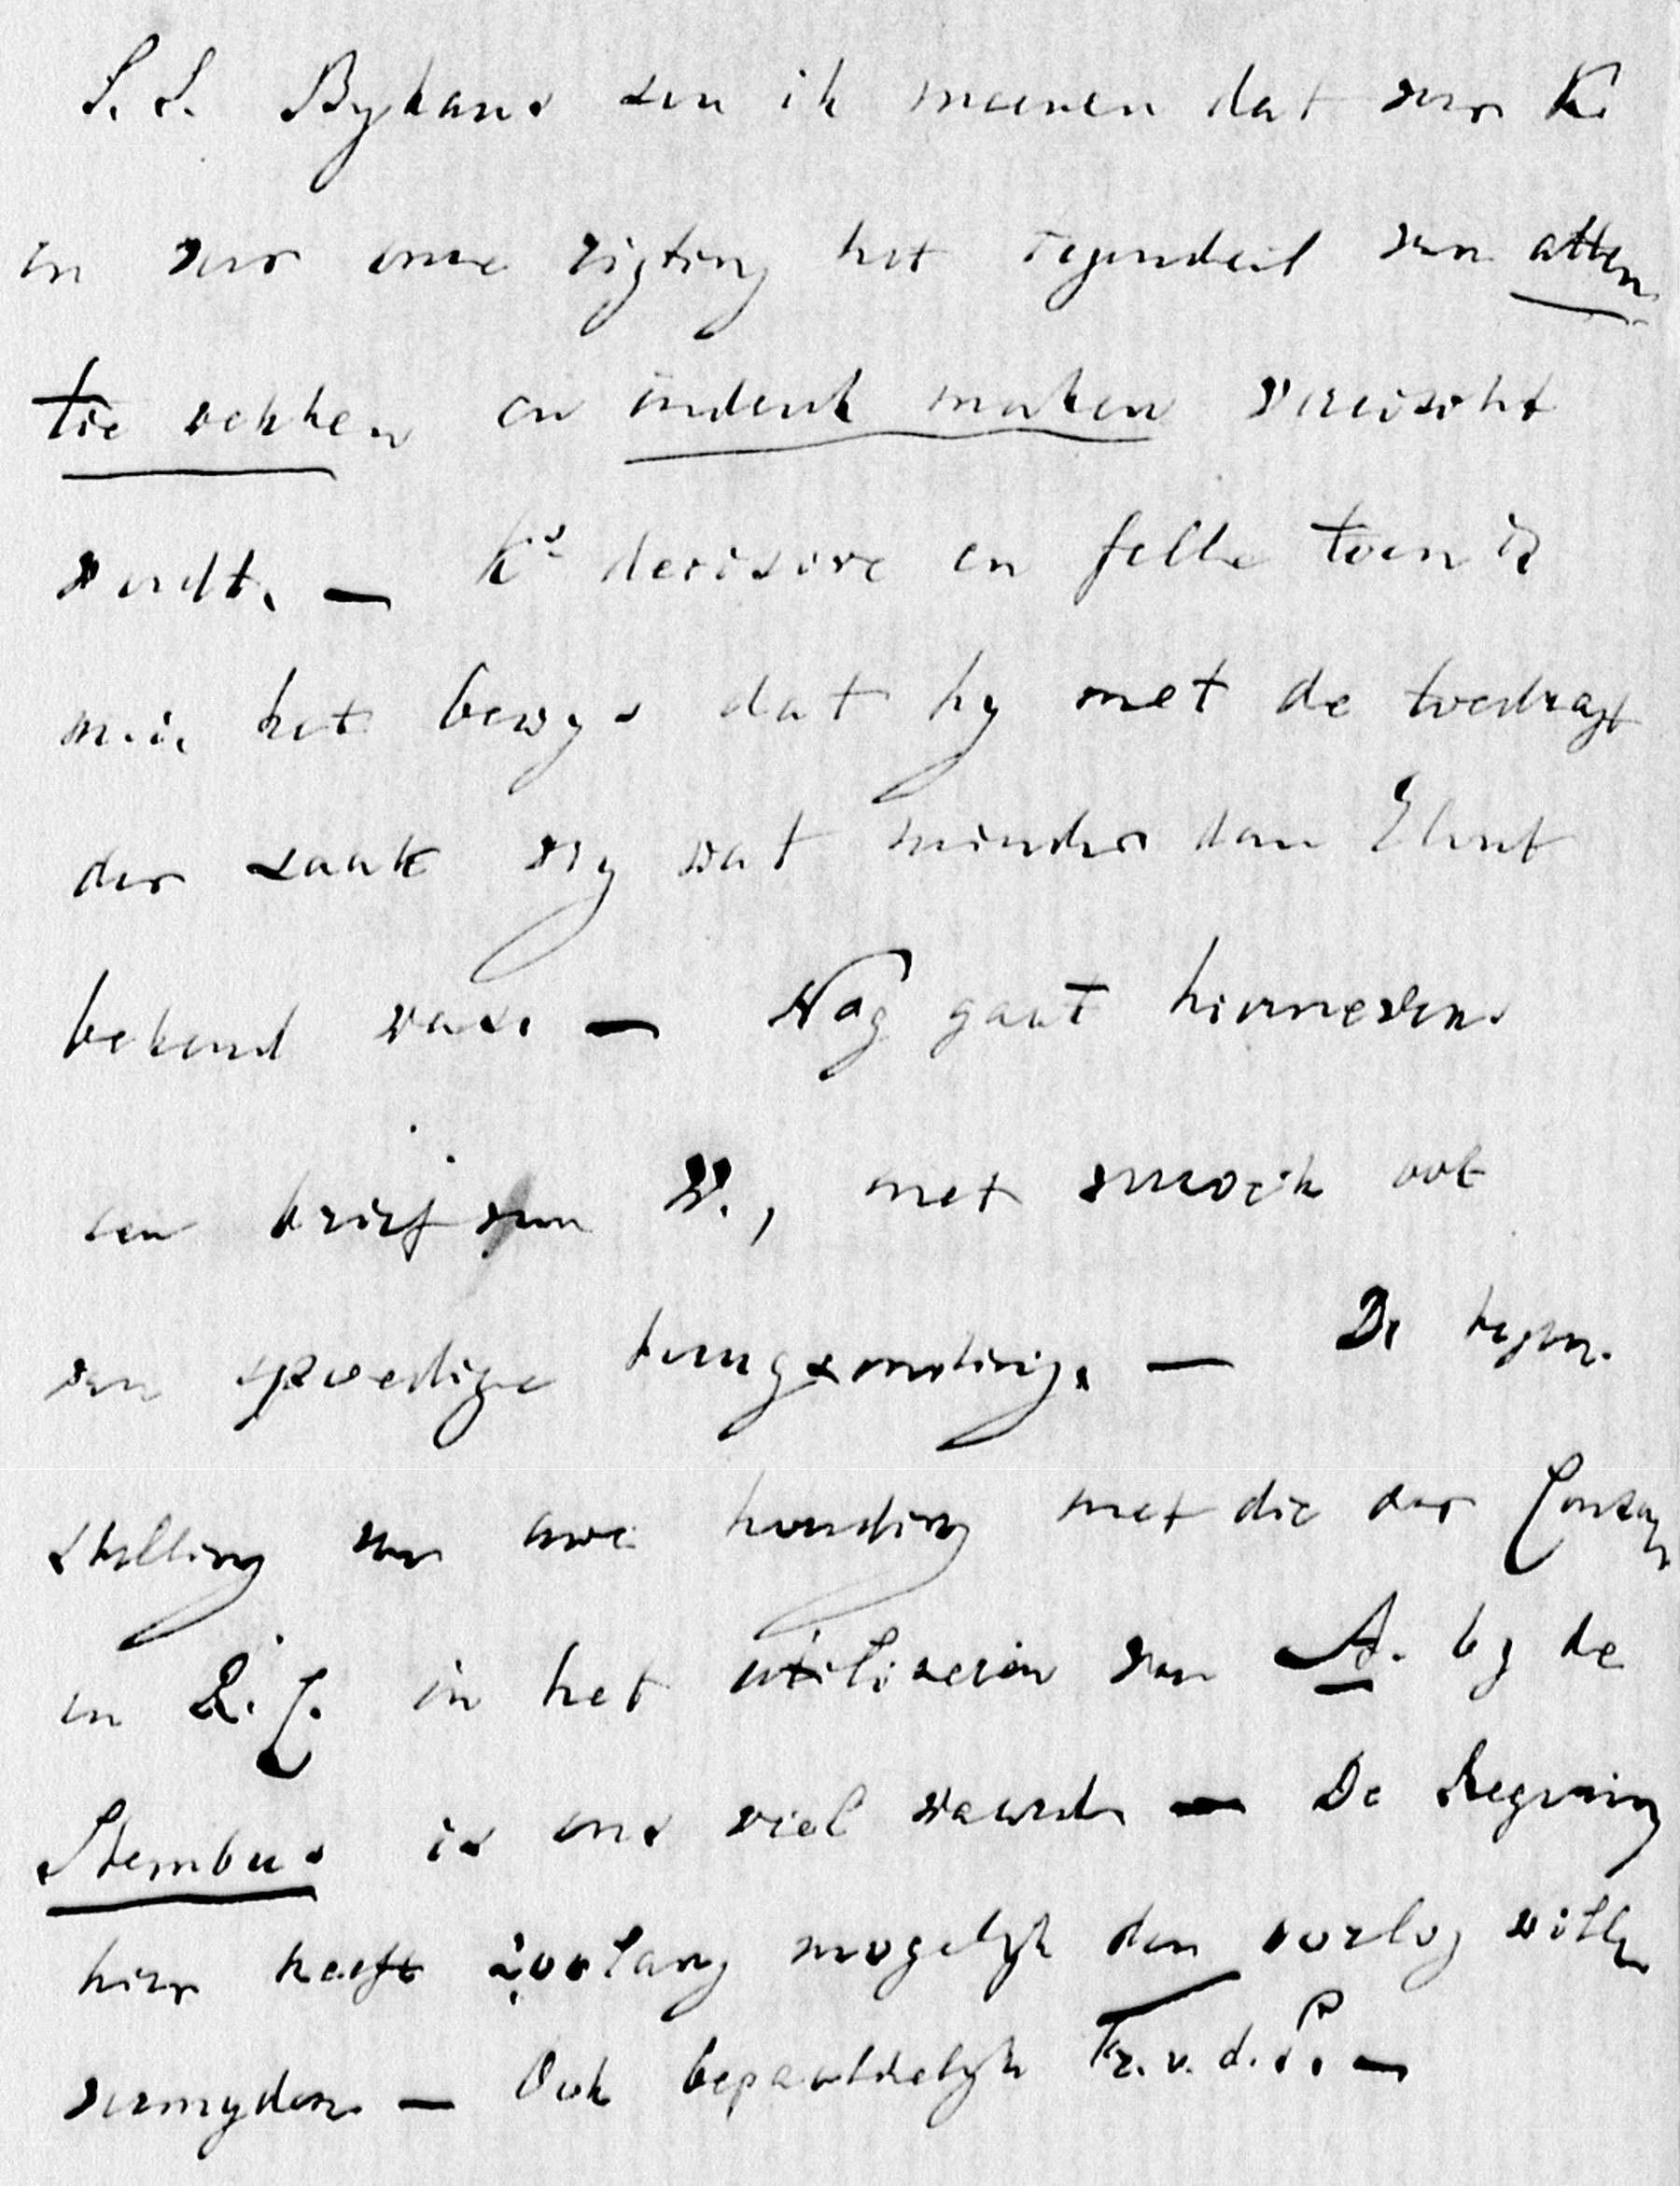 S.S. Bykans zou ik meenen dat voor K.
en voor onze rigting het tegendeel van atten
tie wekken en indruk maken vereischt
wordt. — Ks. decisive en felle toon is
m.i. het bewys dat hy met de toedragt
der zaak vry wat minder dan Elout
bekend was. — Nog gaat hiernevens
een brief van W., met verzoek ook
van spoedige terugzending. — De tegen-
stelling van uwe houding met die der
en R.C. in het utiliseren van A. by de
Stembus is ons veel waard — De Regering
hier heeft zoolang mogelyk den oorlog willen
vermyden — Ook bepaaldelyk Fr. v. d. P. —